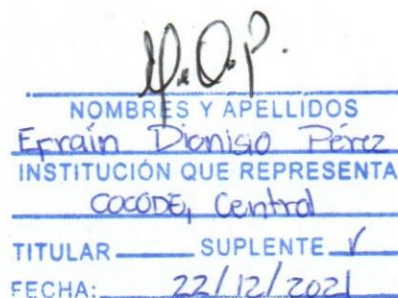 NOMBRES Y APELLIDOS
Efraín Dionisio Pérez
INSTITUCIÓN QUE REPRESENTA
COCODE, Central
TITULAR SUPLENTE ✓
FECHA: 22/12/2021